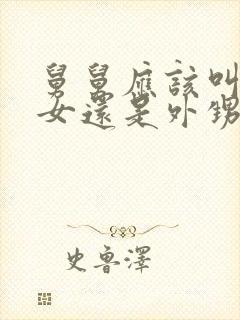 舅舅應該叫
女還是外甥
史魯澤